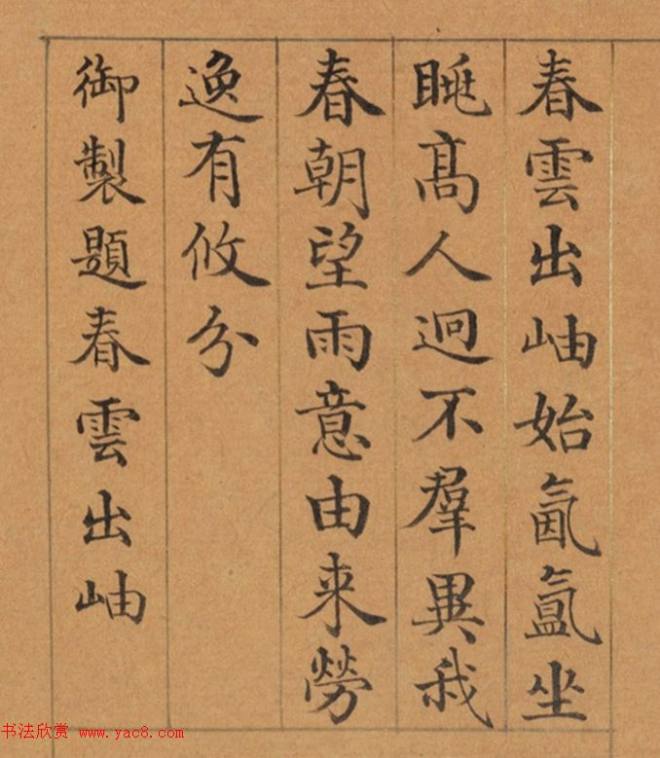 春雲出岫始氤氳坐
眺高人迥不羣異我
春朝望雨意由来勞
逸有攸分
御製題春雲出岫
书法欣赏 www.yac8.com